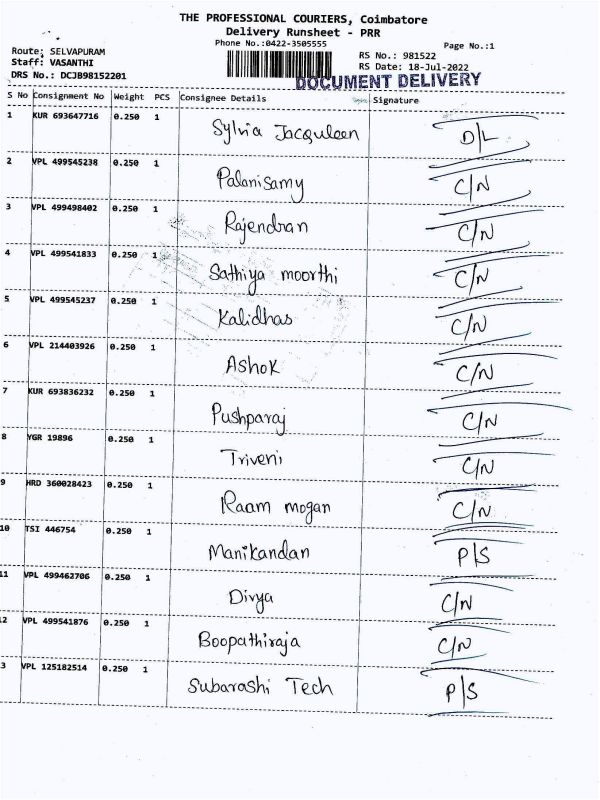 THE PROFESSIONAL COURIERS, Coimbatore
Delivery Runsheet - PRR
Phone No.:0422-3505555
Page No.:1
Route: SELVAPURAM
RS No.: 981522
Staff: VASANTHI
RS Date: 18-Jul-2022
DRS No.: DCJB98152201
DOCUMENT DELIVERY
S No Consignment No Weight PCS Consignee Details Signature
1 KUR 693647716 0.250 1 Sylvia Jacquleen D/L
2 VPL 499545238 0.250 1 Palanisamy C/N
3 VPL 499498402 0.250 1 Rajendran C/N
4 VPL 499541833 0.250 1 Sathiya moorthi C/N
5 VPL 499545237 0.250 1 Kalidhas C/N
6 VPL 214403926 0.250 1 Ashok C/N
7 KUR 693836232 0.250 1 Pushparaj C/N
8 YGR 19896 0.250 1 Triveni C/N
9 HRD 360028423 0.250 1 Raam mogan C/N
10 TSI 446754 0.250 1 Manikandan P/S
11 VPL 499462706 0.250 1 Divya C/N
12 VPL 499541876 0.250 1 Boopathiraja C/N
3 VPL 125182514 0.250 1 Subarashi Tech P/S